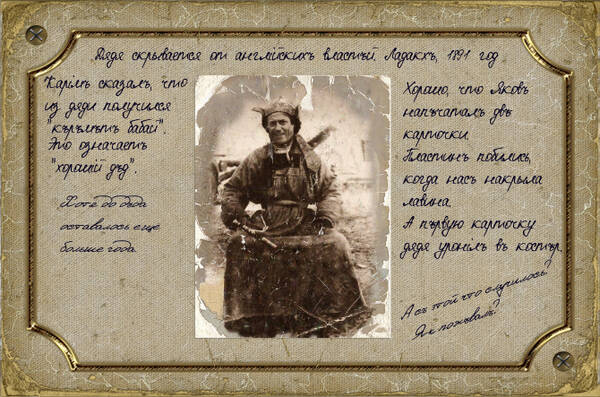 Дядя скрывается от английскихъ властъй. Ладакхъ, 1891 год
Каримъ сказалъ, что
из дяди получился
"къръмътъ бабай".
Это означаетъ
"хороший дъд".
Хотя до дъда
оставалось еще
больше года.
Хорошо, что Яковъ
напъчаталъ двъ
карточки.
Пластинъ побились,
когда насъ накрыла
лавина.
А първую карточку
дядя уронилъ въ костър.
А съ той что случилось?
Як пожъвалъ?